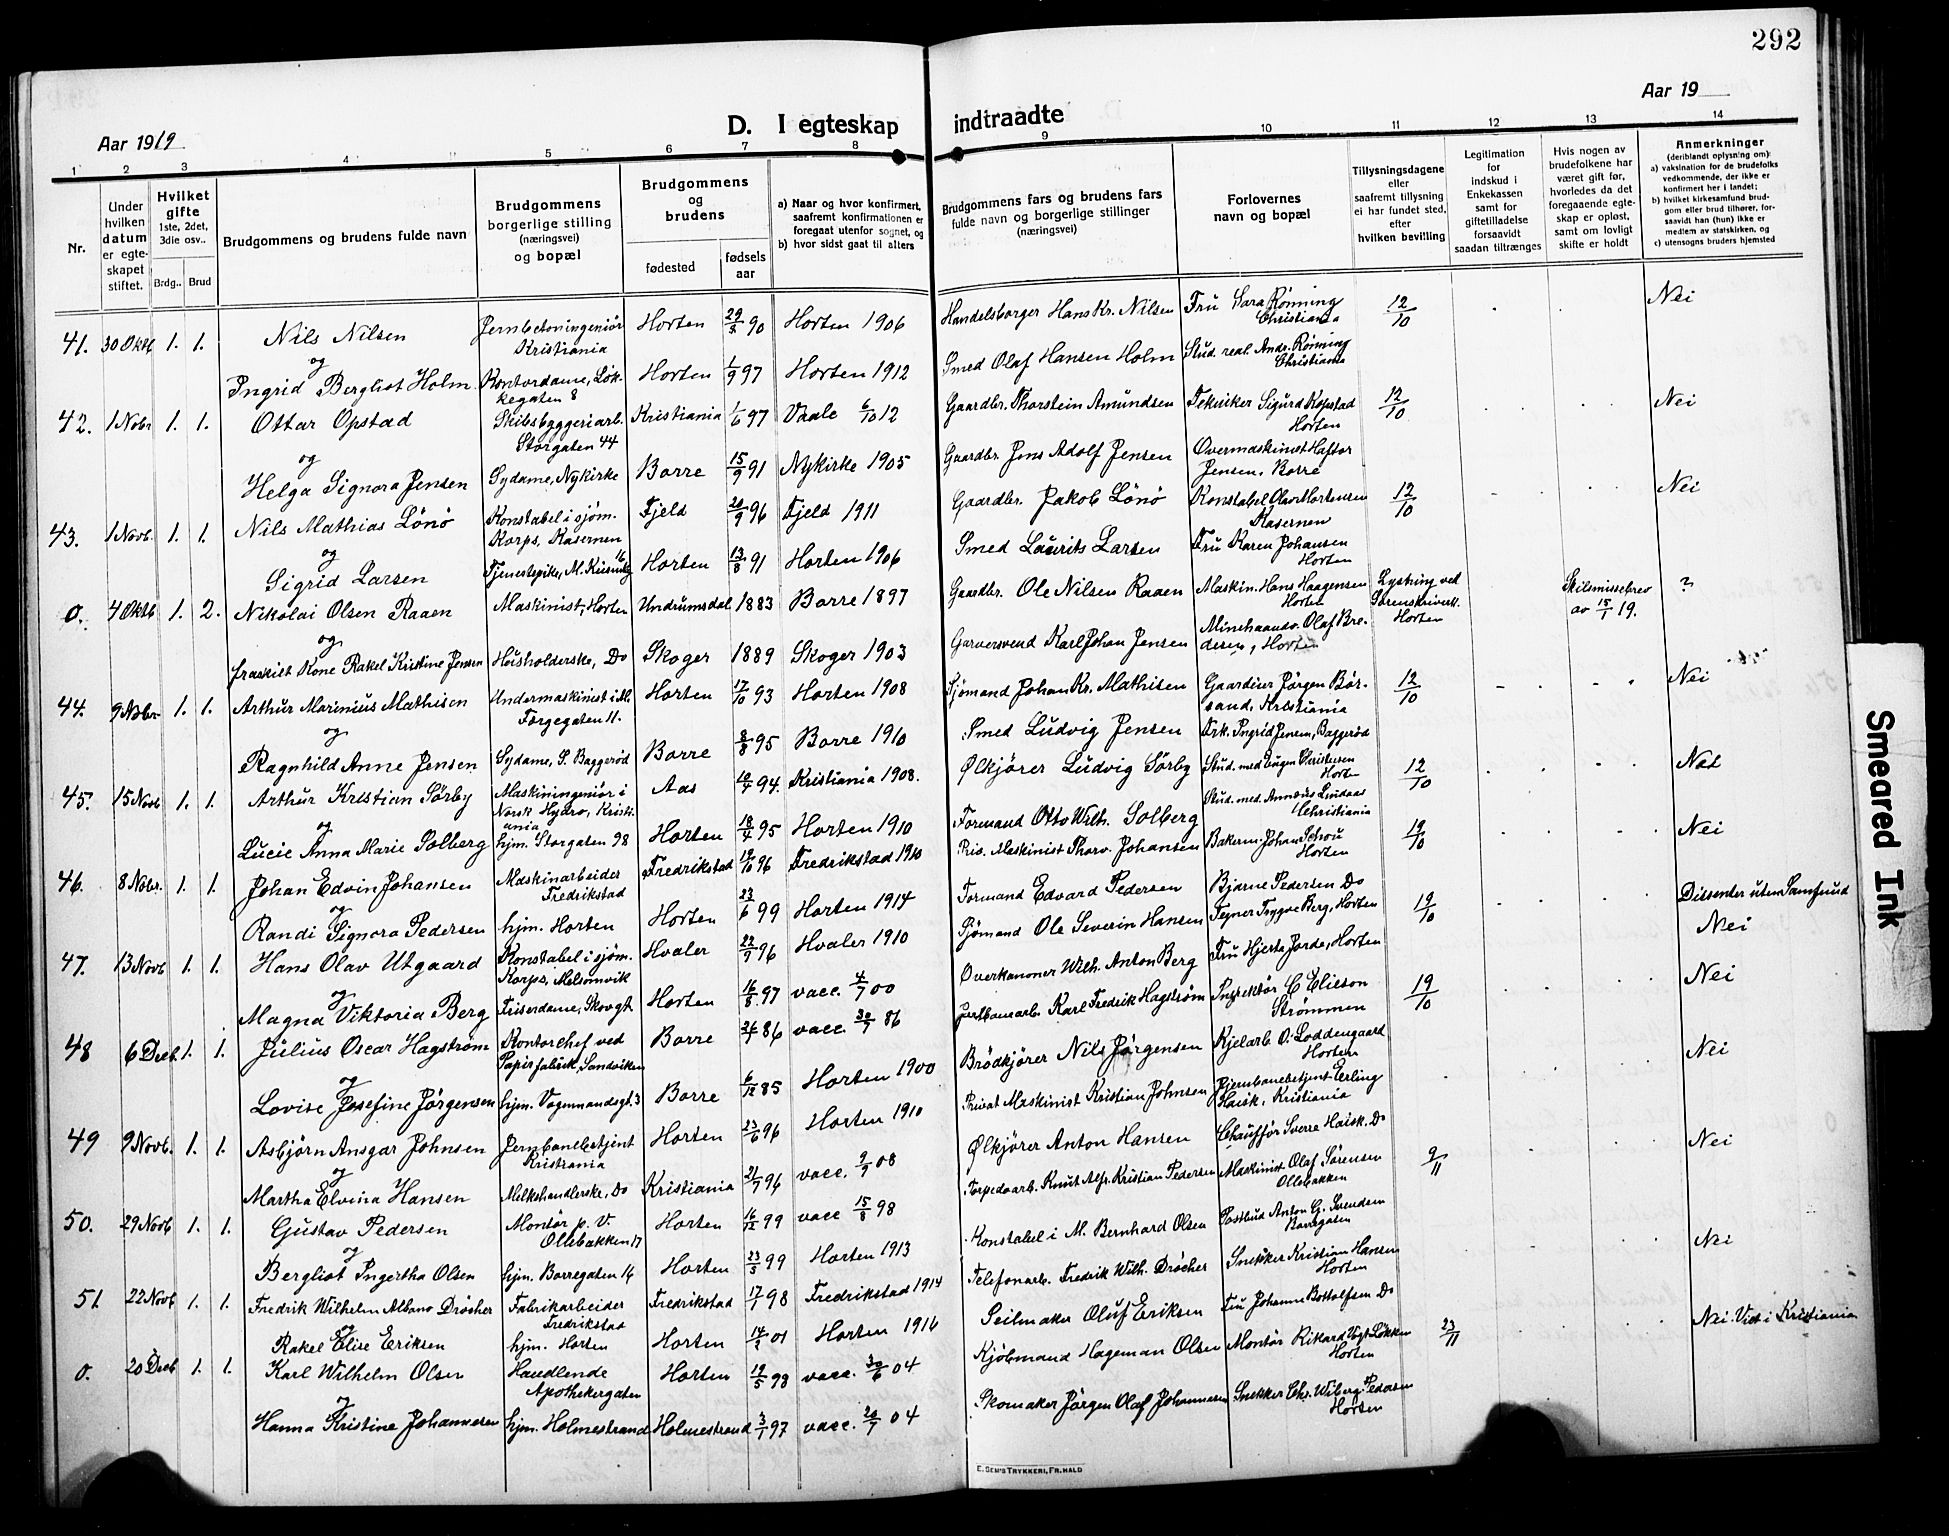 292
Aar 1919
D. I egteskap indtraadte
Aar 19
1 2 3 4 5 6 7 8 9 10 11 12 13 14
Nr.
Under hvilken datum er egte-skapet stiftet.
Hvilket gifte 1ste, 2det, 3die osv..
Brdg.. Brud
Brudgommens og brudens fulde navn
Brudgommens borgerlige stilling (næringsvei) og bopæl
Brudgommens og brudens
fødested
fødsels aar
a) Naar og hvor konfirmert, saafremt konfirmationen er foregaat utenfor sognet, og
b) hvor sidst gaat til alters
Brudgommens fars og brudens fars fulde navn og borgerlige stillinger (næringsvei)
Forlovernes navn og bopæl
Tillysningsdagene eller saafremt tillysning ei har fundet sted, efter hvilken bevilling
Legitimation for indskud i Enkekassen samt for giftetilladelse forsaavidt saadan tiltrænges
Hvis nogen av brudefolkene har været gift før, hvorledes da det foregaaende egte-skap er opløst, samt om lovligt skifte er holdt
Anmerkninger (deriblandt oplysning om):
a) vaksination for de brudefolks vedkommende, der ikke er konfirmert her i landet;
b) hvilket kirkesamfund brud-gom eller brud tilhører, for-saavidt han (hun) ikke er medlem av statskirken, og
c) utensogns bruders hjemsted
41. 30 Oktb 1. 1. Nils Nilsen Jernbetoningeniør Kristiania Horten 29/5 90 Horten 1906 Handelsborger Hans Kr. Nilsen Fru Sara Rønning Christiania 12/10 Nei
og
Ingrid Bergliot Holm Kontordame, Løk-kegaten 8 Horten 1/9 97 Horten 1912 Smed Olaf Hansen Holm Stud. real. Andr. Rønning Christiania
42. 1 Nobr 1. 1. Ottar Opstad Skibsbyggeriarb. Storgaten 44 Kristiania 1/6 97 Vaale 6/10 12 Gaardbr. Thorstein Amundsen Tekniker Sigurd Kopstad Horten 12/10 Nei
og
Helga Signora Jensen Sydame, Nykirke Borre 15/9 91 Nykirke 1905 Gaardbr. Jens Adolf Jensen Overmaskinist Haftor Jensen, Borre
43. 1 Novb. 1. 1. Nils Mathias Lönö Konstabel i sjøm. Korps, Kasernen Fjeld 20/9 96 Fjeld 1911 Gaardbr. Jakob Lönö Konstabel Olav Mortensen Kasernen 12/10 Nei
og
Sigrid Larsen Tjenestepike, 16 Horten 13/8 91 Horten 1906 Smed Laurits Larsen Fru Karen Johansen Horten
0. 4 Oktb 1. 2. Nikolai Olsen Raaen Maskinist, Horten Undrumsdal 1883 Borre 1897 Gaardbr. Ole Nilsen Raaen Maskin. Hans Haagensen Horten Lysning ved Sorenskriveren Horten Skilsmissebrev av 15/1 19. ?
og
fraskilt Kone Rakel Kristine Jensen Husholderske, Do Skoger 1889 Skoger 1903 Garversvend Karl Johan Jensen Olaf Bre-desen, Horten
44. 9 Nobr 1. 1. Arthur Marinius Mathisen Undermaskinist i M. Torgegaten 11. Horten 17/10 93 Horten 1908 Sjømand Johan Kr. Mathisen Gaardeier Jörgen Bör-sand, Kristiania 12/10 Nei
og
Ragnhild Anne Jensen Sydame, S. Baggerød Borre 8/8 95 Borre 1910 Smed Ludvig Jensen Frk. Ingrid Jensen, Baggerød
45. 15 Novb 1. 1. Arthur Kristian Sörby Maskiningeniør i Norsk Hydro, Kristi-ania Aas 10/4 94. Kristiania 1908. Ölkjører Ludvig Sörby Stud. med Eugen Horten 12/10 Nei
og
Lucie Anna Marie Solberg hjm. Storgaten 98 Horten 18/4 95 Horten 1910 Formand Otto Wilh. Solberg Stud. med. Annæus Lindaas Christiania
46. 8 Nobr. 1. 1. Johan Edvin Johansen Maskinarbeider Fredrikstad Fredrikstad 19/10 96 Fredrikstad 1910 Maskinist Thorv. Johansen Johan Schou Horten 19/10 Nei
og
Randi Signora Pedersen hjm. Horten Horten 23/6 99 Horten 1914 Formand Edvard Pedersen Bjarne Pedersen Do Dissenter uten Samfund
47. 13 Novb 1. 1. Hans Olav Utgaard Konstabel i sjøm. Korps, Melsomvik Hvaler 22/9 96 Hvaler 1910 Sjømand Ole Severin Hansen Tegner Trygve Berg, Horten 19/10 Nei
og
Magna Viktoria Berg Friserdame, Skovgt Horten 16/8 97 vacc. 4/7 00 Overkanoner Wilh. Anton Berg Fru Hjerta Jorde, Horten
48 6 Decb 1. 1. Julius Oscar Hagström Kontorchef ved Papirfabrik, Sandviken Borre 86 vacc. 30/7 86 Karl Fredrik Hagström Inspektör C Elieson Strømmen 19/10 Nei
og
Lovise Josefine Jörgensen hjm. Vognmandsgt. 3 Borre 6/12 85 Horten 1900 Brödkjører Nils Jörgensen Kjelarb O. Loddengaard Horten
49 9 Novb. 1. 1. Asbjörn Ansgar Johnsen Jernbanebetjent Kristiania Horten 23/6 96 Horten 1910 Privat Maskinist Kristian Johnsen Jernbanebetjent Erling Haisk, Kristiania Nei
og
Martha Elvina Hansen Melkehandlerske, Do Kristiania 21/7 96 vacc. 9/9 08 Ölkjører Anton Hansen Chauffør Sverre Haisk. Do
50. 29 Novb 1. 1. Gustav Pedersen Montör p. V. Ollebakken 17 Horten 16/12 99 vacc 15/8 98 Torpedoarb. Knut Alfr. Kristian Pedersen Maskinist Olaf Sörensen Ollebakken 9/11 Nei
og
Bergliot Ingertha Olsen hjm. Borregaten 16 Horten 23/5 99 Horten 1913 Konstabel i M. Bernhard Olsen Postbud Anton G. Svendsen Borregaten
51. 22 Novb 1. 1. Fredrik Wilhelm Albano Dröscher Fabrikarbeider Fredrikstad Fredrikstad 17/1 98 Fredrikstad 1914 Telefonarb. Fredrik Wilh. Dröscher Snekker Kristian Hansen Horten Nei
og
Rakel Elise Eriksen hjm. Horten Horten 14/2 01 Horten 1916 Seilmaker Oluf Eriksen Fru Johanne Bottolfsen Do
0. 20 Decb 1. 1. Karl Wilhelm Olsen Handlende Apothekergaten Horten 19/5 98 vacc. 30/6 04 Kjöbmand Hageman Olsen Montör Rikard Vogt Løkken Horten 23/11 Nei. Viet i Kristiania
og
Hanna Kristine Johannesen hjm. Holmestrand Holmestrand 3/1 97 vacc. 20/7 04 Skomaker Jörgen Olaf Johannesen Snekker Chr. Wiberg Pedersen Horten
E. SEM'S TRYKKERI, FR.HALD
Smeared Ink